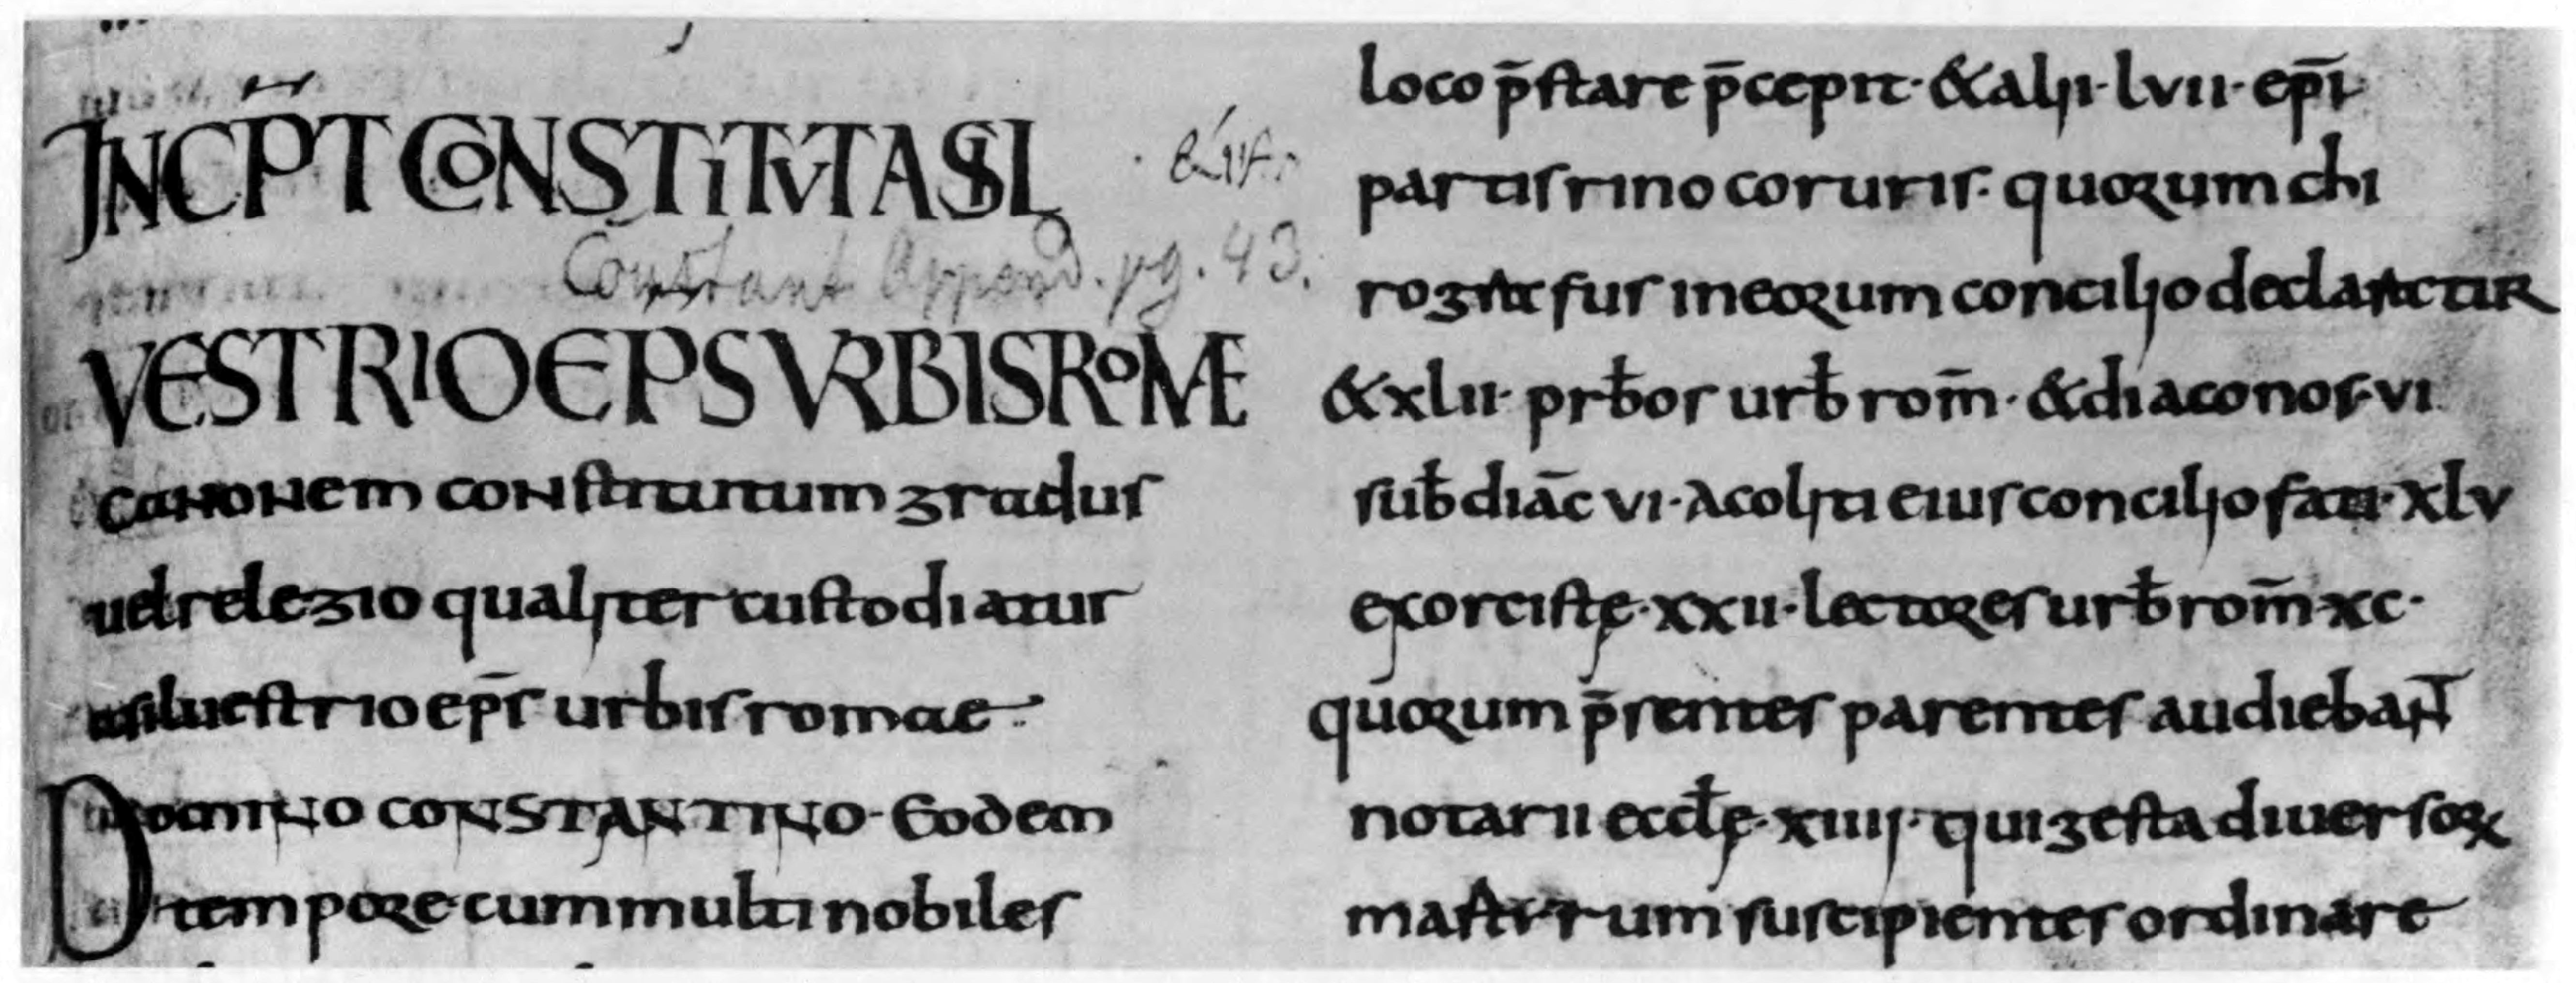 INCP̄T CONSTITVTA SIL
Constant Append. pg. 43.
VESTRIO EPS VRBIS ROMÆ
canonem constitutum gradus
uel relegio qualiter custodiatur
a siluestrio ep̄s urbis romae.
Domino CONSTANTINO· Eodem
tempore cum multi nobiles
loco p̄stare p̄cepit· & alii· lvii· ep̄i·
partis rinocoruris· quorum chi
rografus in eorum concilio declaretur
& xlii· prb̄os urb̄ rom̄· & diaconos· vi
sub̄diāc vi· acoliti eius concilio facti· xlv
exorcistę· xxii· lectores urb̄ rom̄· xc·
quorum p̄sentes parentes audiebant
notarii eccl̄ę· xiiii· qui gesta diuersoꝝ
martirum suscipientes ordinare